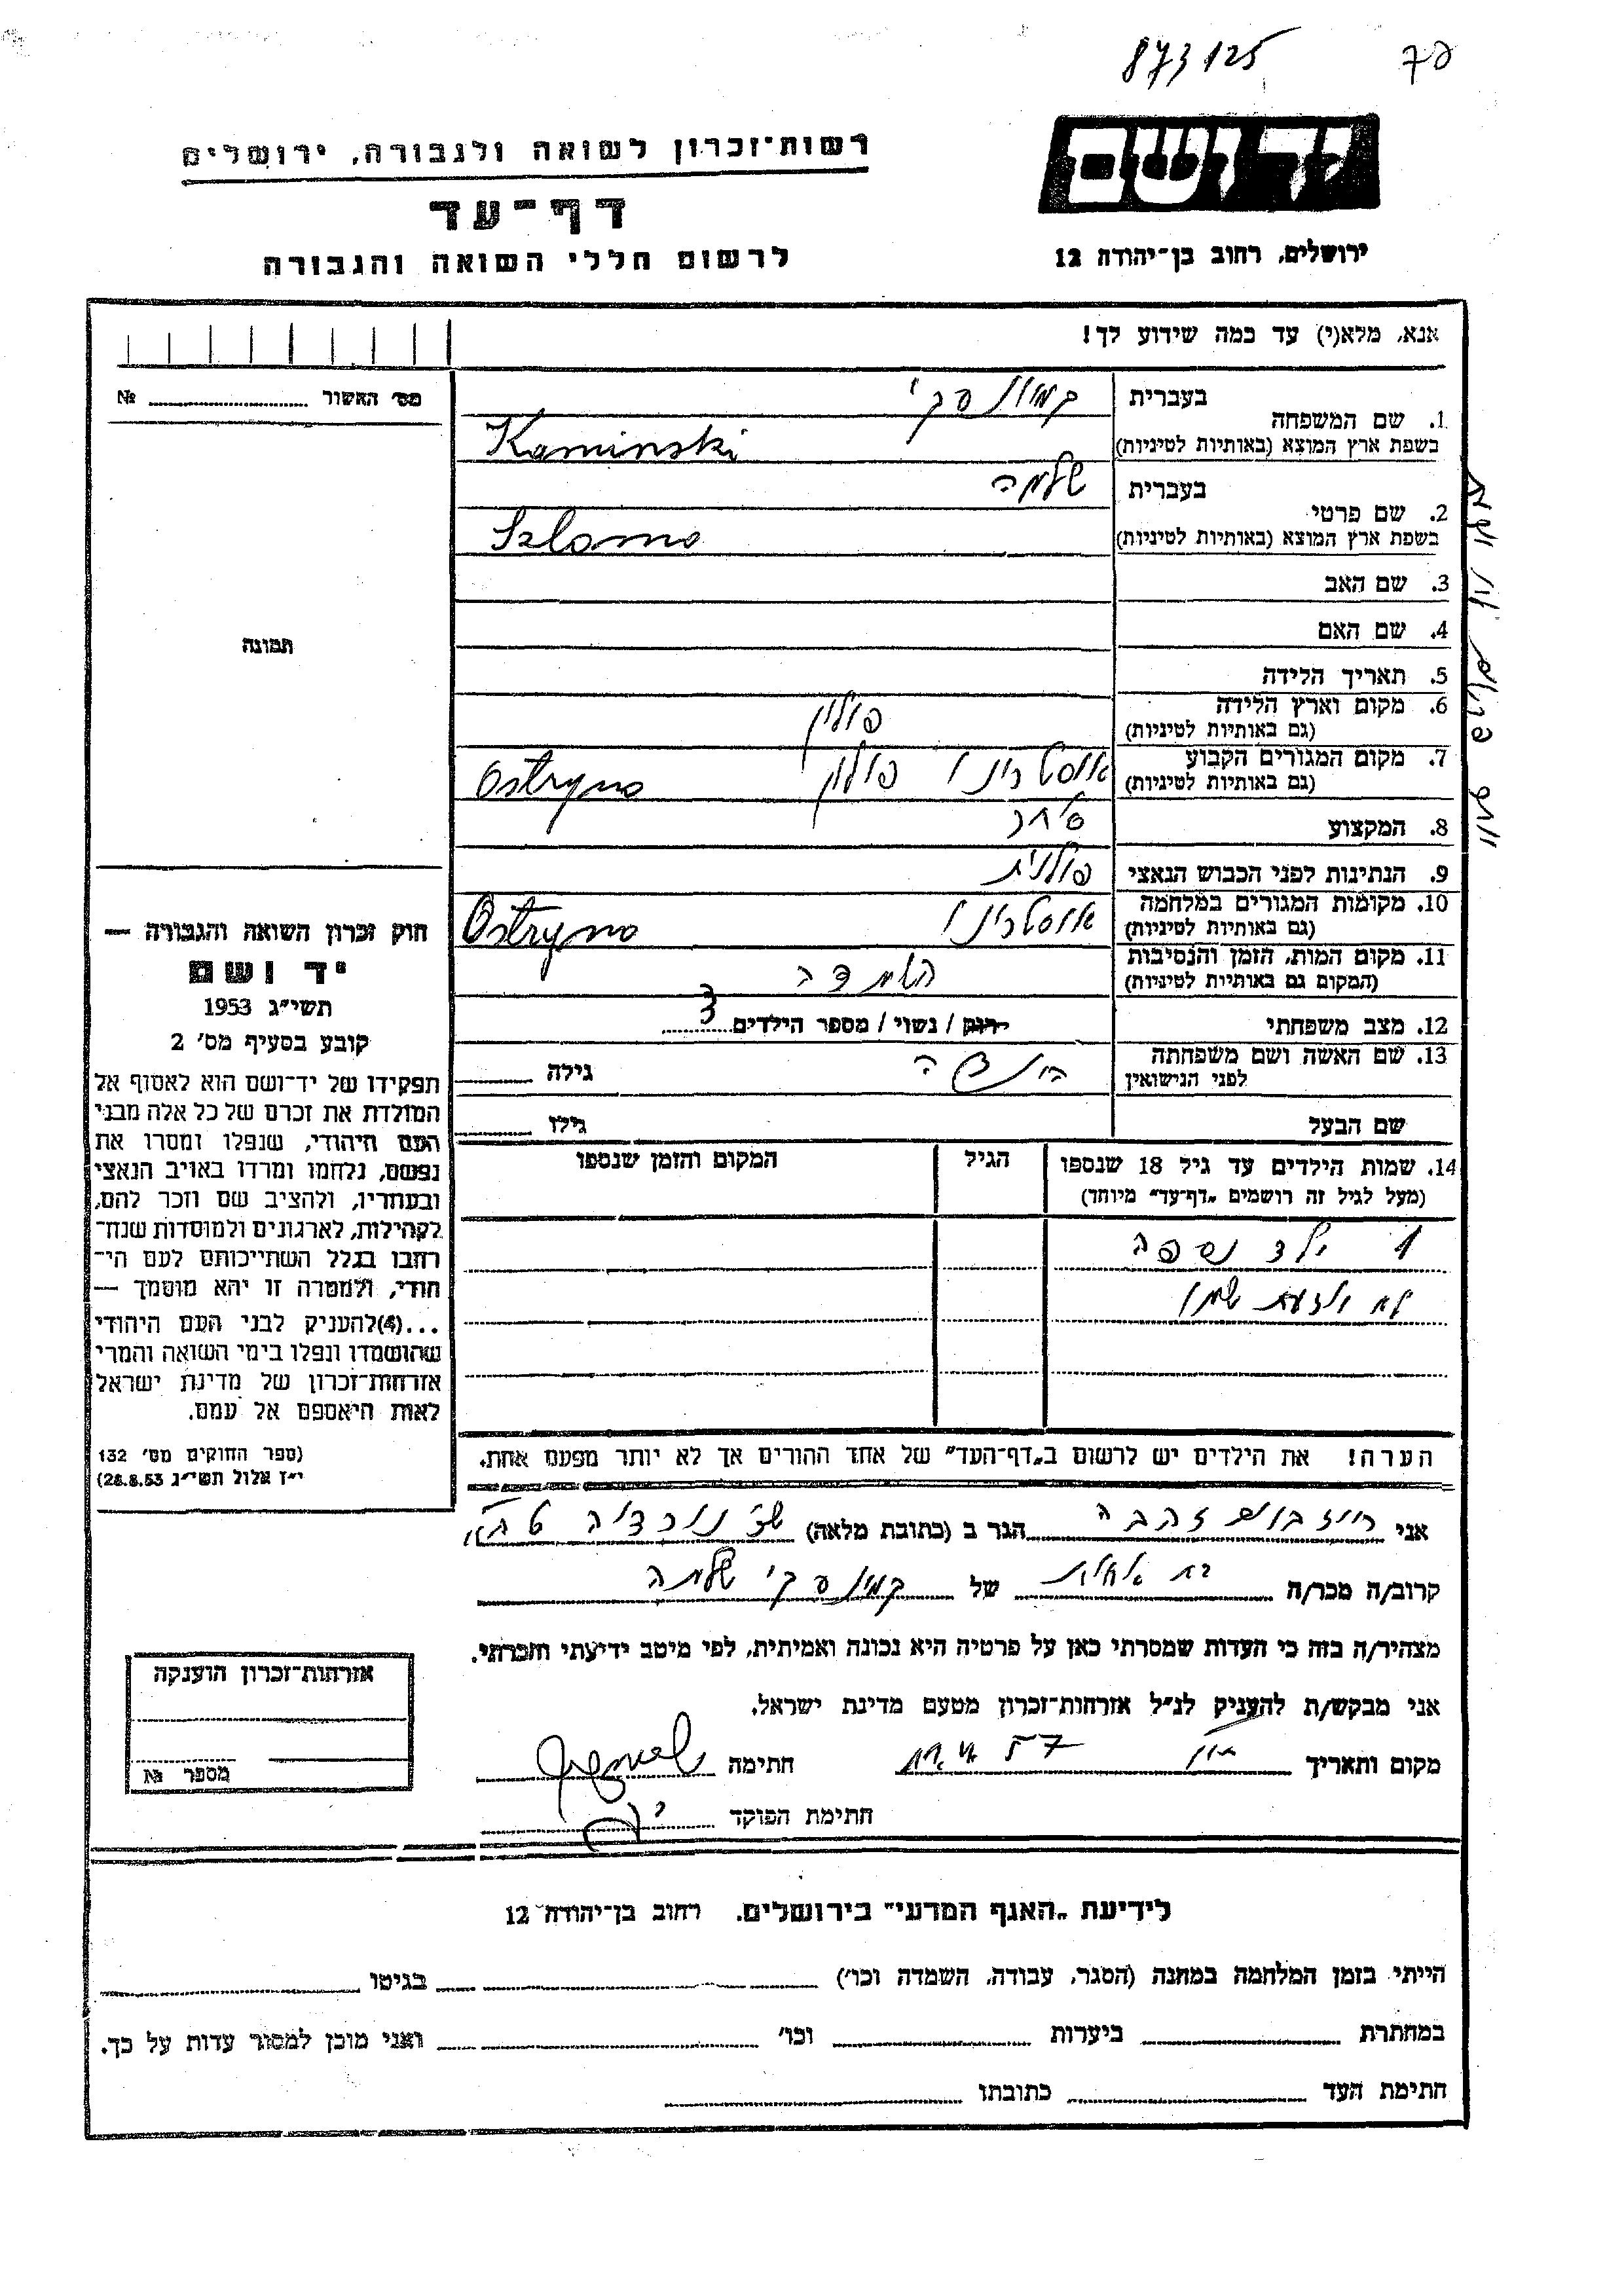 873125
יד ושם
רשות־זכרון לשואה ולגבורה, ירושלים
דף־עד
לרשום חללי השואה והגבורה
ירושלים, רחוב בן־יהודה 12
אנא, מלא(י) עד כמה שידוע לך!
מס׳ האשור № 
1. שם המשפחה
בעברית קמינסקי
בשפת ארץ המוצא (באותיות לטיניות) Kaminski
2. שם פרטי
בעברית שלמה
בשפת ארץ המוצא (באותיות לטיניות) Szlomo
3. שם האב
4. שם האם
5. תאריך הלידה
6. מקום וארץ הלידה
(גם באותיות לטיניות) פולין
7. מקום המגורים הקבוע
(גם באותיות לטיניות) אוסטרינו פולין Ostryno
8. המקצוע סוחר
9. הנתינות לפני הכבוש הנאצי פולנית
10. מקומות המגורים במלחמה
(גם באותיות לטיניות) אוסטרינו Ostryno
11. מקום המות, הזמן והנסיבות
(המקום גם באותיות לטיניות) השמדה
12. מצב משפחתי רווק / נשוי / מספר הילדים 3
13. שם האשה ושם משפחתה
לפני הנישואין גילה
שם הבעל גילו
14. שמות הילדים עד גיל 18 שנספו
(מעל לגיל זה רושמים „דף־עד״ מיוחד)
הגיל
המקום והזמן שנספו
1 ילד נספה
לא יודעת שמו
הערה! את הילדים יש לרשום ב„דף־העד״ של אחד ההורים אך לא יותר מפעם אחת.
תמונה
חוק זכרון השואה והגבורה —
יד ושם
תשי״ג 1953
קובע בסעיף מס׳ 2
תפקידו של יד־ושם הוא לאסוף אל
המולדת את זכרם של כל אלה מבני
העם היהודי, שנפלו ומסרו את
נפשם, נלחמו ומרדו באויב הנאצי
ובעוזריו, ולהציב שם וזכר להם,
לקהילות, לארגונים ולמוסדות שנח־
רחבו בגלל השתייכותם לעם הי־
הודי, ולמטרה זו יהא מוסמך —
...(4)להעניק לבני העם היהודי
שהושמדו ונפלו בימי השואה והמרי
אזרחות־זכרון של מדינת ישראל
לאות היאספם אל עמם.
(ספר החוקים מס׳ 132
י״ז אלול תשי״ג 28.8.53)
אני רוזבוים זהבה הגר ב (כתובת מלאה)
קרוב/ה מכר/ה בת אחות של קמינסקי שלמה
מצהיר/ה בזה כי העדות שמסרתי כאן על פרטיה היא נכונה ואמיתית, לפי מיטב ידיעתי והכרתי.
אני מבקש/ת להעניק לנ״ל אזרחות־זכרון מטעם מדינת ישראל.
מקום ותאריך חתימה
חתימת הפוקד
אזרחות־זכרון הוענקה
מספר №
לידיעת „האגף המדעי״ בירושלים. רחוב בן־יהודה 12
הייתי בזמן המלחמה במחנה (הסגר, עבודה, השמדה וכו׳) בגיטו
במחתרת ביערות וכו׳ ואני מוכן למסור עדות על כך.
חתימת העד כתובתו